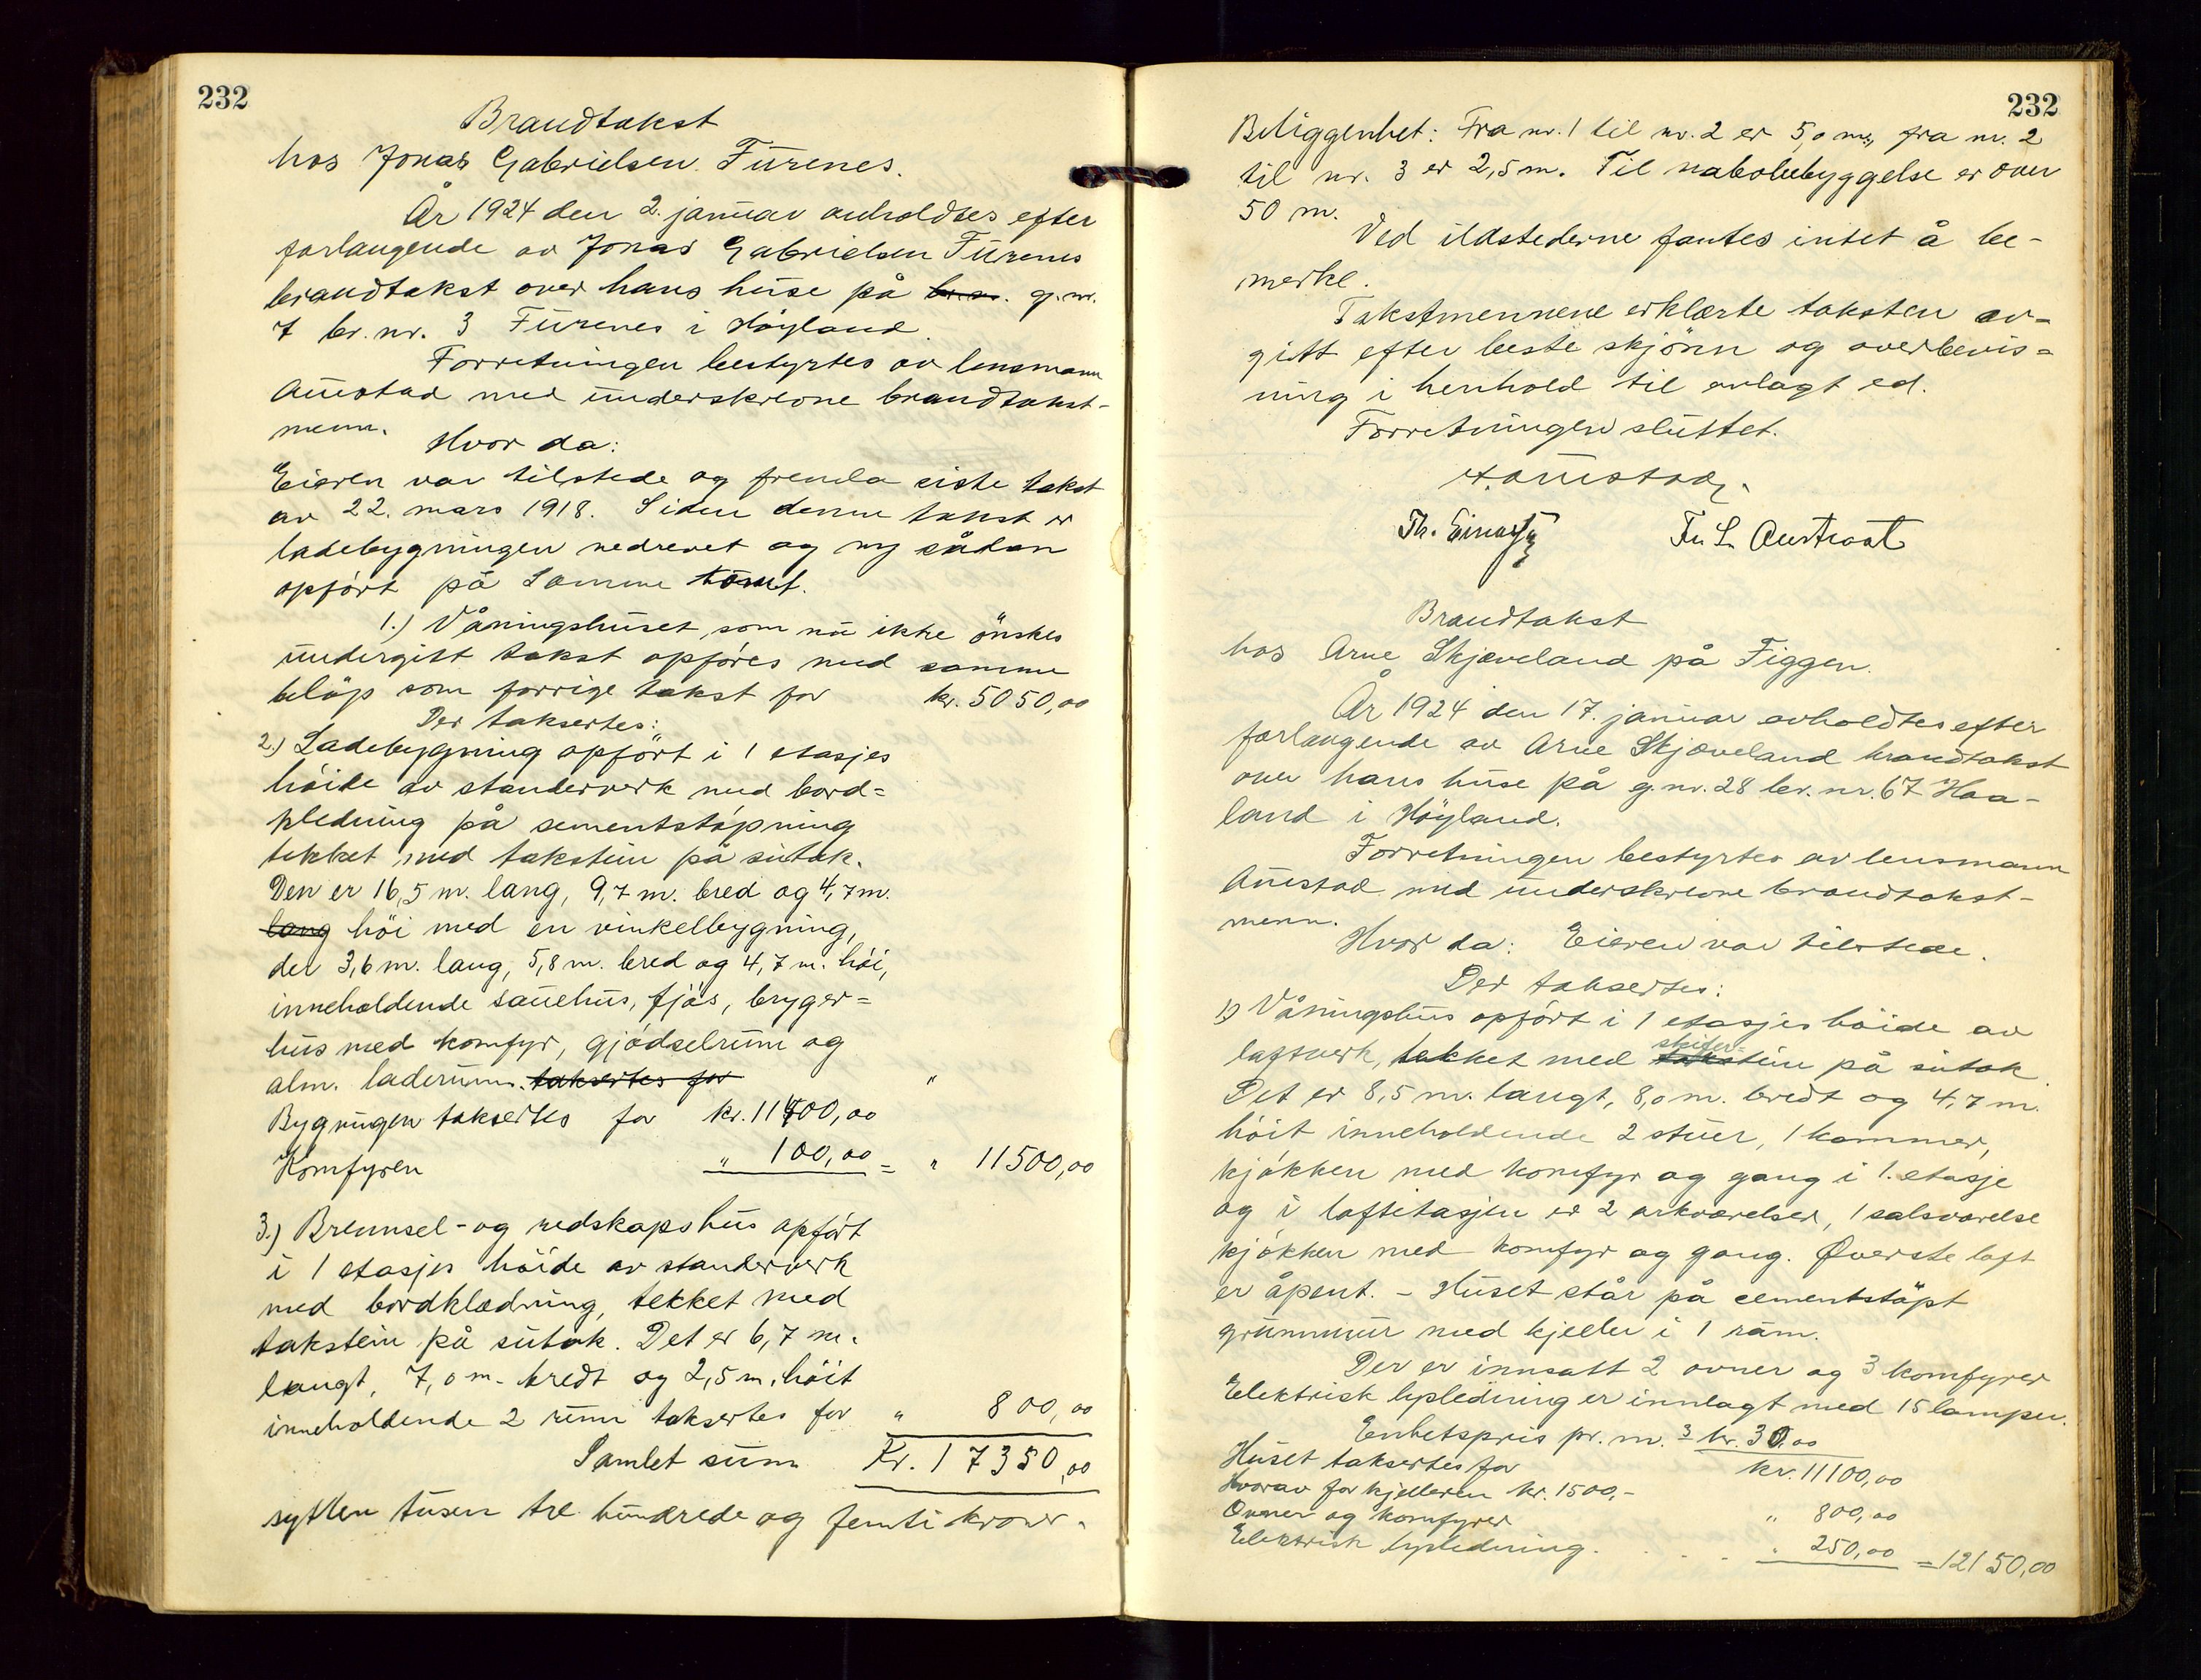 232
Brandtakst
hos Jonas Gabrielsen Furenes.
År 1924 den 2. januar avholdtes efter
forlangende av Jonas Gabrielsen Furenes
brandtakst over hans huse på br.nr. g.nr.
7 br.nr. 3 Furenes i Høyland.
Forretningen bestyrtes av lensmann
Auestad med underskrevne brandtakst-
menn.
Hvor da:
Eieren var tilstede og fremla siste takst
av 22. mars 1918. Siden denne takst er
ladebygningen nedrevet og ny sådan
opført på samme tomt.
1.) Våningshuset som nu ikke önskes
undergitt takst opføres med samme
beløp som forrige takst for kr. 5050,00
Der taksertes:
2.) Ladebygning opfört i 1 etasjes
höide av standerverk med bord=
kledning på sementstøpning
tekket med takstein på sutak.
Den er 16,5 m. lang, 9,7 m. bred og 4,7 m.
lang höi med en vinkelbygning,
der 3,6 m. lang, 5,8 m. bred og 4,7 m. höi,
inneholdende sauehus, fjös, bryger=
hus med komfyr, gjødselrum og
alm. laderum. taksertes for "
Bygningen taksertes for kr. 11400,00
Komfyren " 100,00 = " 11500,00
3.) Brennsel- og redskapshus opført
i 1 etasjes höide av standerverk
med bordklædning, tekket med
takstein på sutak. Det er 6,7 m.
langt, 7,0 m. bredt og 2,5 m. höit
inneholdende 2 rum taksertes for " 800,00
Samlet sum Kr. 17350,00
sytten tusen tre hundrede og femti kroner.
232
Beliggenhet: Fra nr. 1 til nr. 2 er 5,0 m., fra nr. 2
til nr. 3 er 2,5 m. Til nabobebyggelse er over
50 m.
Ved ildstederne fantes intet å be-
merke.
Takstmennene erklærte taksten av-
gitt efter beste skjönn og overbevis=
ning i henhold til avlagt ed.
Forretningen sluttet.
Auestad.
Th. Fr. L. Austraat
Brandtakst
hos Arne Skjæveland på Figgen.
År 1924 den 17. januar avholdtes efter
forlangende av Arne Skjæveland brandtakst
over hans huse på g.nr. 28 br. nr. 67 Haa-
land i Høyland.
Forretningen bestyrtes av lensmann
Auestad med underskrevne brandtakst-
menn.
Hvor da: Eieren var tilstede.
Der taksertes:
1) Våningshus opført i 1 etasjes höide av
skifer-
laftverk, tekket med takstein på sutak
Det er 8,5 m. langt, 8,0 m. bredt og 4,7 m.
höit inneholdende 2 stuer, 1 kammer,
kjøkken med komfyr og gang i 1. etasje
og i loftetasjen er 2 arkværelser, 1 salsværelse
kjøkken med komfyr og gang. Øverste loft
er åpent. - Huset står på cementstöpt
grunnmur med kjeller i 1 rum.
Der er innsatt 2 ovner og 3 komfyrer
Elektrisk lysledning er innlagt med 15 lamper.
Enhetspris pr. m.3 kr. 30,00
Huset taksertes for kr. 11100,00
Hvorav for kjelleren kr. 1500,-
Ovner og komfyrer " 800,00
Elektrisk lysledning. . . . " 250,00 = 12150,00